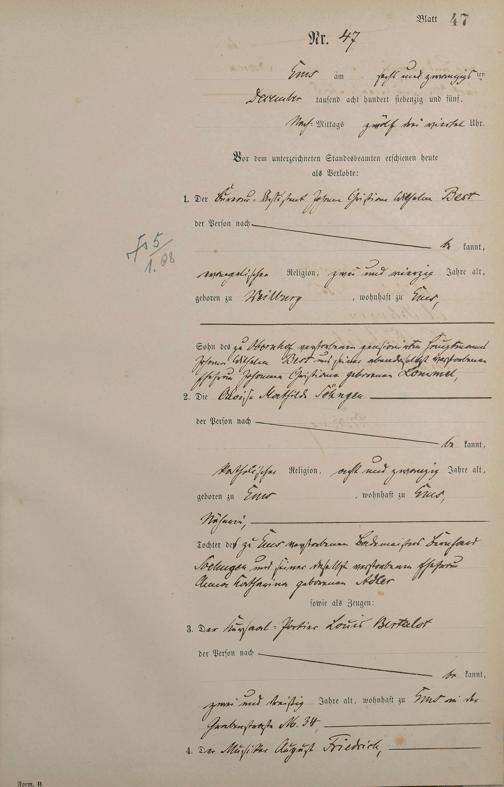 Blatt 47
Nr. 47
Ems am sechs und zwanzigsten
December tausend acht hundert siebenzig und fünf,
Nach-Mittags zwölf drei viertel Uhr.
Vor dem unterzeichneten Standesbeamten erschienen heute
als Verlobte:
1. Der Büreau-Assistent Johann Christian Wilhelm Best
der Person nach
be kannt,
evangelischer Religion, zwei und vierzig Jahre alt,
geboren zu Weilburg, wohnhaft zu Ems,
Sohn des zu verstorbenen pensionirten
Johann Wilhelm Best und seiner ebendaselbst verstorbenen
Ehefrau Johanna Christiana geborenen Lommel,
2. Die Mathilde Söhngen
der Person nach
be kannt,
katholischer Religion, acht und zwanzig Jahre alt,
geboren zu Ems, wohnhaft zu Ems,
Näherin,
Tochter des zu Ems verstorbenen Bademeisters Bernhard
Soehngen und seiner daselbst verstorbenen Ehefrau
Anna Katharina geborenen Adler
sowie als Zeugen:
3. Der Kursaal-Portier Louis Bertalot
der Person nach
be kannt,
zwei und dreißig Jahre alt, wohnhaft zu Ems in der
Grabenstraße No. 34,
4. Der Musiker August Friedrich,
Form. B.